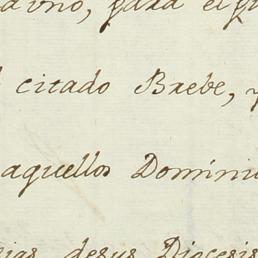 uno, para el
citado Brebe,
aquellos Domini
de sus Diocesis